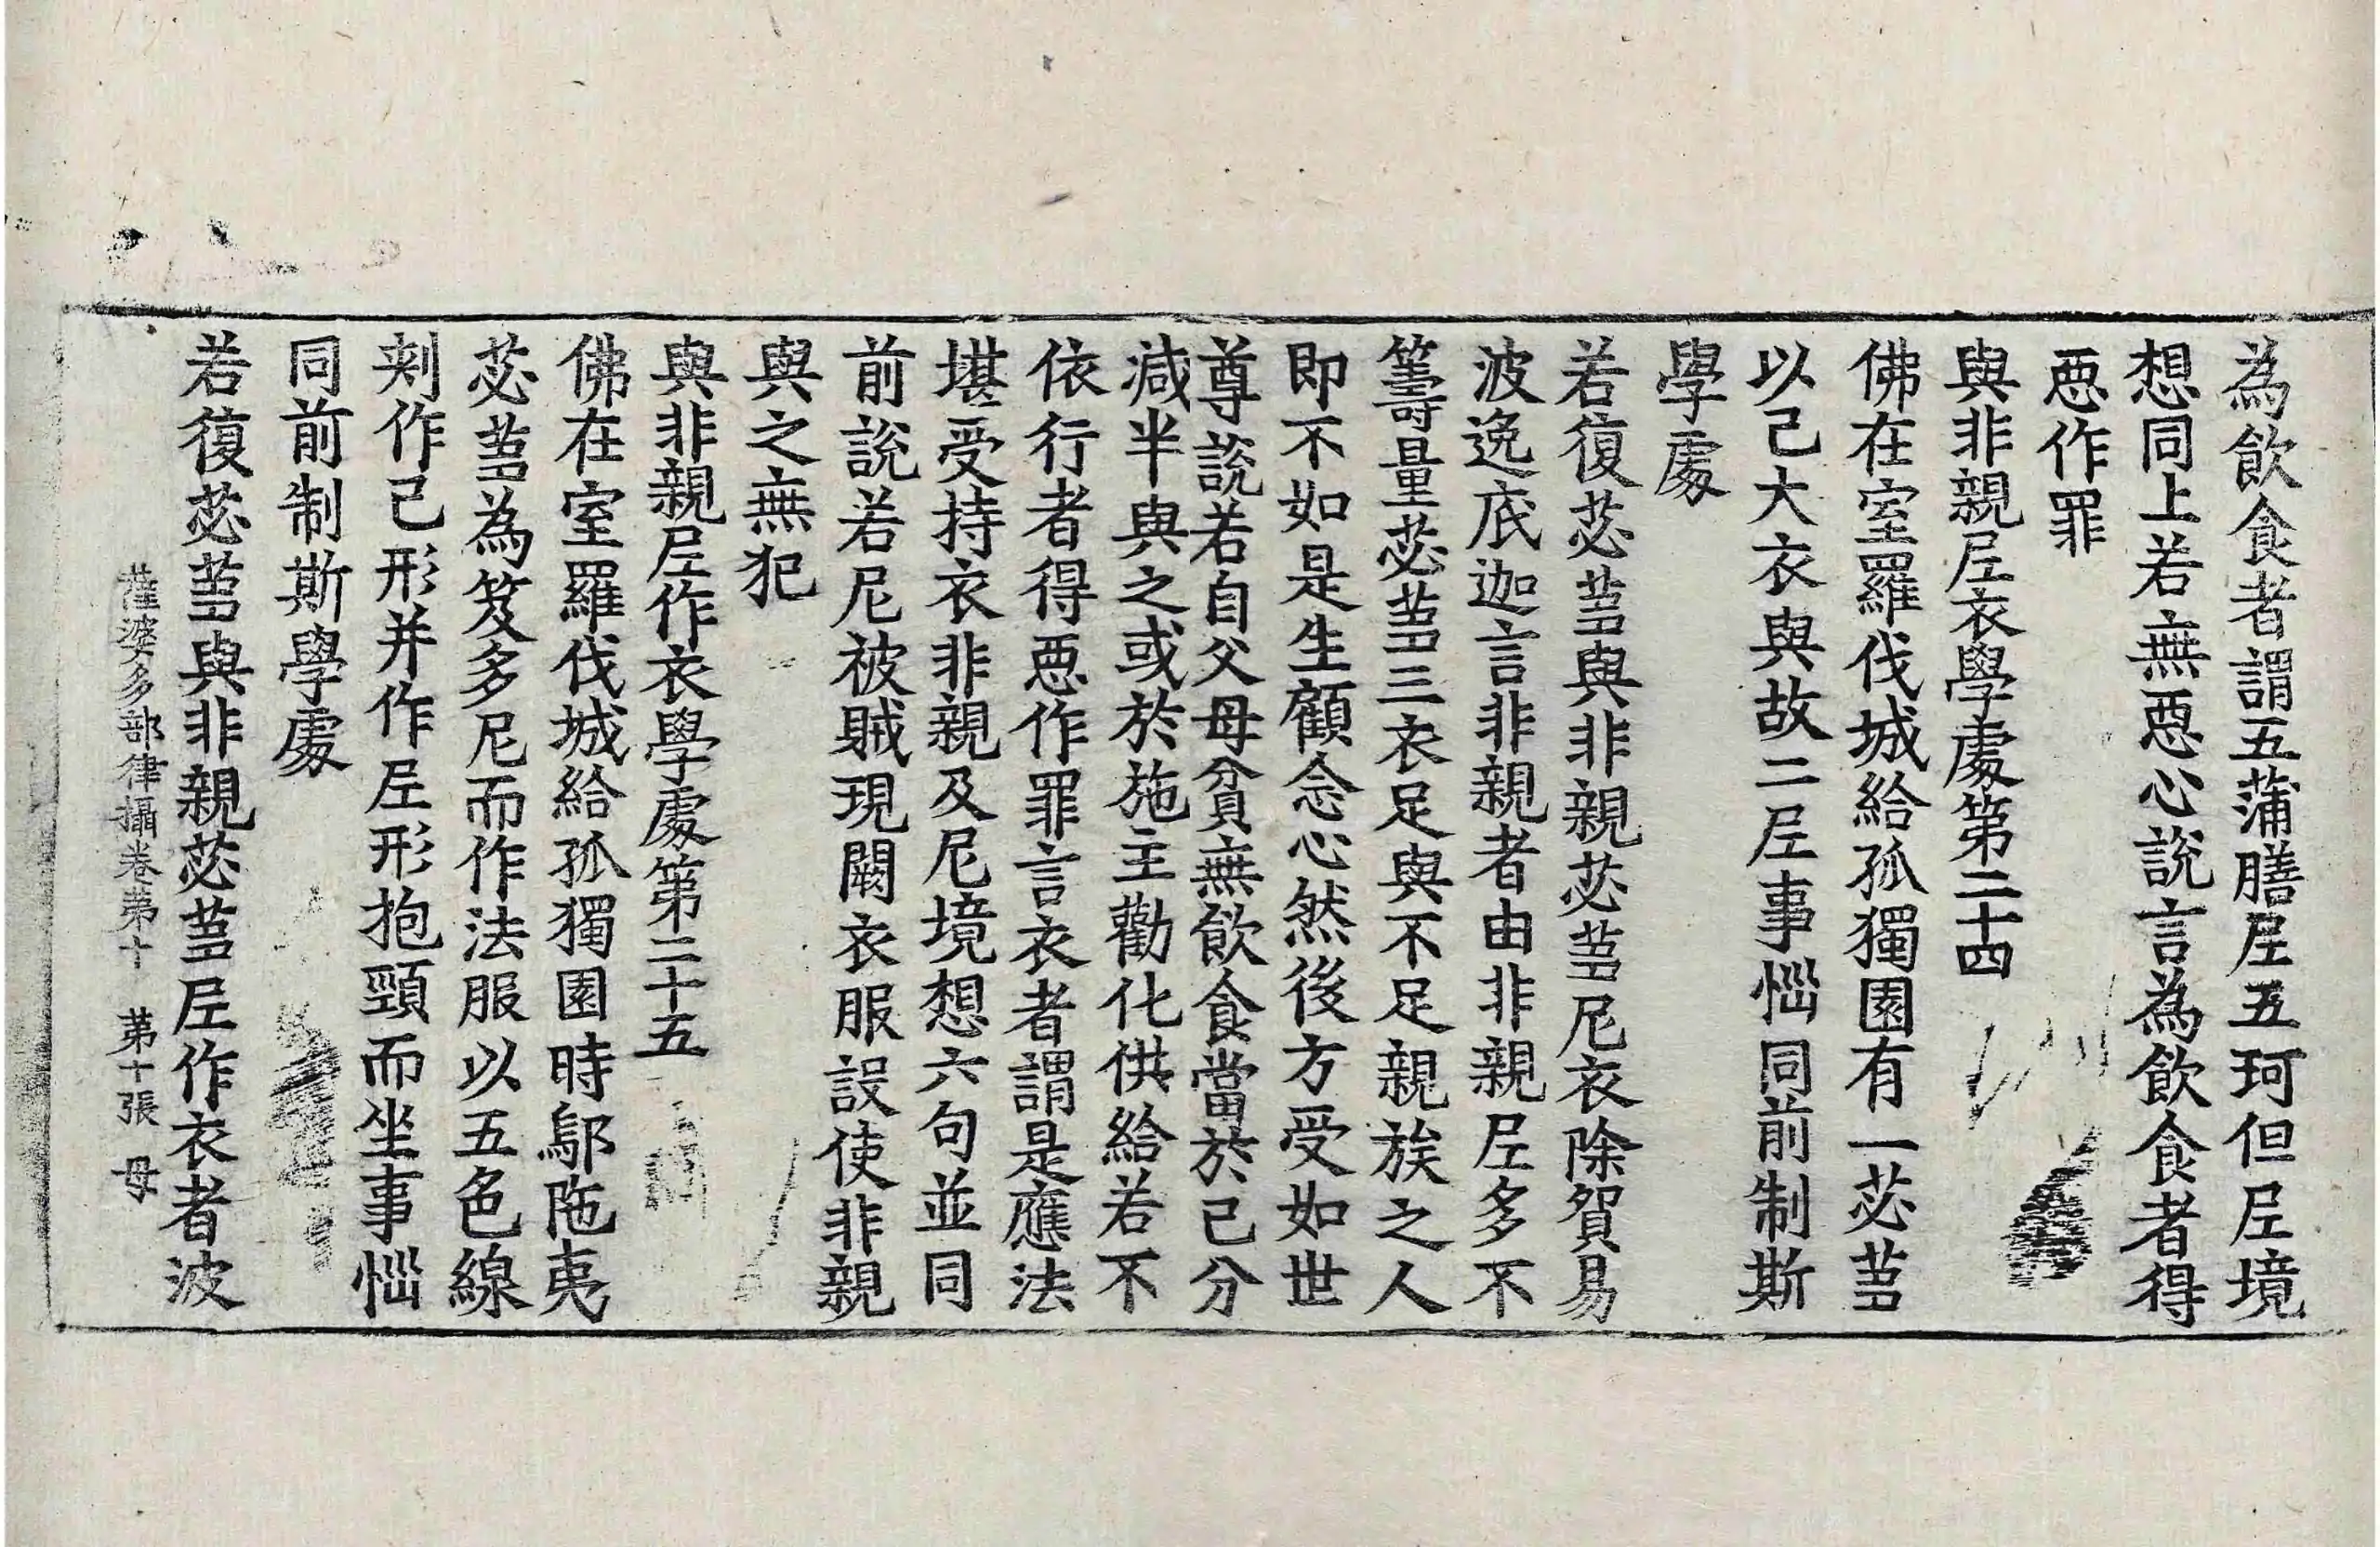 為飲食者謂五蒲膳𡰱五珂但𡰱境
想同上若無惡心說言為飲食者得
惡作罪
與非親𡰱衣學處第二十四
佛在室羅伐城給孤獨園有一苾蒭
以己大衣與故二𡰱事惱同前制斯
學處
若復苾蒭與非親苾蒭尼衣除貿易
波逸底迦言非親者由非親𡰱多不
籌量苾蒭三衣足與不足親族之人
即不如是生顧念心然後方受如世
尊說若自父母貧無飲食當於己分
減半與之或於施主勸化供給若不
依行者得惡作罪言衣者謂是應法
堪受持衣非親及尼境想六句並同
前說若尼被賊現闕衣服設使非親
與之無犯
與非親𡰱作衣學處第二十五
佛在室羅伐城給孤獨園時鄔陁夷
苾蒭為笈多尼而作法服以五色線
刾作己形并作𡰱形抱頸而坐事惱
同前制斯學處
若復苾蒭與非親苾蒭𡰱作衣者波
薩婆多部律攝卷第十 第十張 母